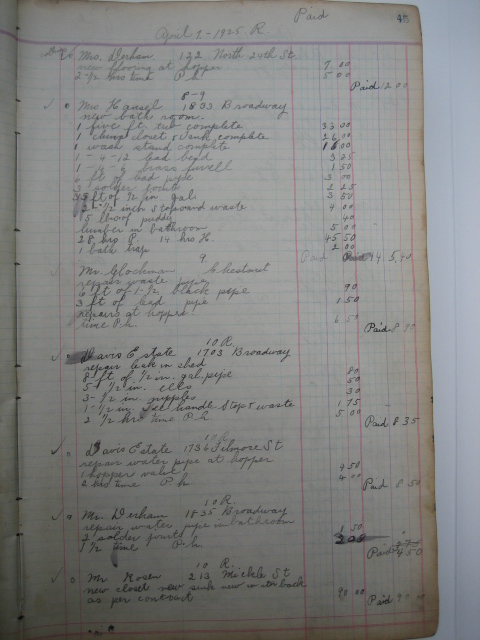 Paid 45
April 9 - 1925 R.
Mrs. Derham 122 North 24th St
new flooring at hopper 7 00
2 1/2 hrs time P.h. 5 00
Paid 12 00
8-9
Mr Hansel 1833 Broadway
new bath room.
1 five ft. tub complete 33 00
1 closet & tank complete 26 00
1 wash stand complete
1 - 4 - 12 lead bend 3 25
1 brass ferrell 1 50
6 ft of lead pipe 3 00
3 solder joints 2 25
ft of 1/2 in gal 3 50
1/2 inch stop and waste 4 00
15 lb of putty 40
lumber in bathroom 5 00
28 hrs P. 14 hrs H. 45 50
1 bath trap 2 00
Paid
9.
Mr. Glochman Chestnut
repair waste pipe
6 ft of 1-1/2 black pipe 90
3 ft of lead pipe 1 50
repairs at hopper
time P.h. 6 50
Paid 8 90
10 R.
Davis Estate 1703 Broadway
repair leak in shed
8 ft of 1/2 in. gal. pipe 80
5 - 1/2 in. ells 50
3 - 1/2 in. nipples 30
1 - 1/2 in. Tee handle Stop & waste 1 75
2 1/2 hrs time P.h 5 00
Paid 8 35
10 R.
Davis Estate 1736 Filmore St
repair water pipe at hopper
1 hopper valve 4 50
2 hrs time P.h. 4 00
Paid 8 50
10 R.
Mr. Derham 1835 Broadway
repair water pipe in bathroom
2 solder joints 1 50
1 1/2 time P.h.
Paid
10 R.
Mr Rosen 213 Mickle St
new closet new sink new water back
as per contract 90 00
Paid 90 00